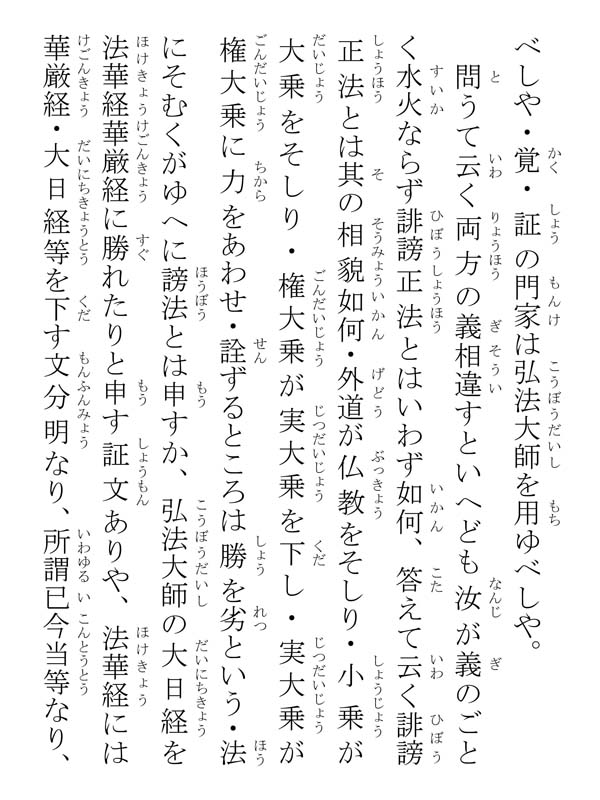 べしや・覚・証の門家は弘法大師を用ゆべしや。
問うて云く両方の義相違すといへども汝が義のごと
く水火ならず誹謗正法とはいわず如何、答えて云く誹謗
正法とは其の相貌如何・外道が仏教をそしり・小乗が
大乗をそしり・権大乗が実大乗を下し・実大乗が
権大乗に力をあわせ・詮ずるところは勝を劣という・法
にそむくがゆへに謗法とは申すか、弘法大師の大日経を
法華経華厳経に勝れたりと申す証文ありや、法華経には
華厳経・大日経等を下す文分明なり、所謂已今当等なり、